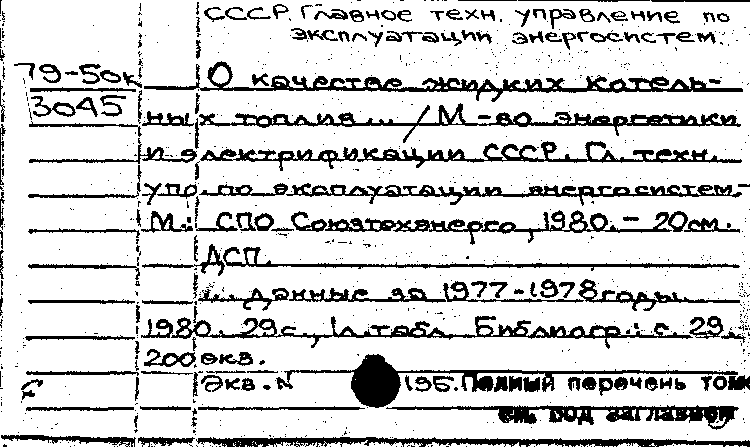 СССР. Главное техн. управление по
эксплуатации энергосистем.
79-50к О качестве жидких котель-
3045 ных топлив... / М-во энергетики
и электрификации СССР. Гл. техн.
упр. по эксплуатации энергосистем.-
М.: СПО Союзтехэнерго, 1980. - 20см.
ДСП.
... данные за 1977-1978 годы.
1980. 29с., 1л. табл. Библиогр.: с. 29.
200 экз.
Экз. N 195. Полный перечень томов
см. под заглавием